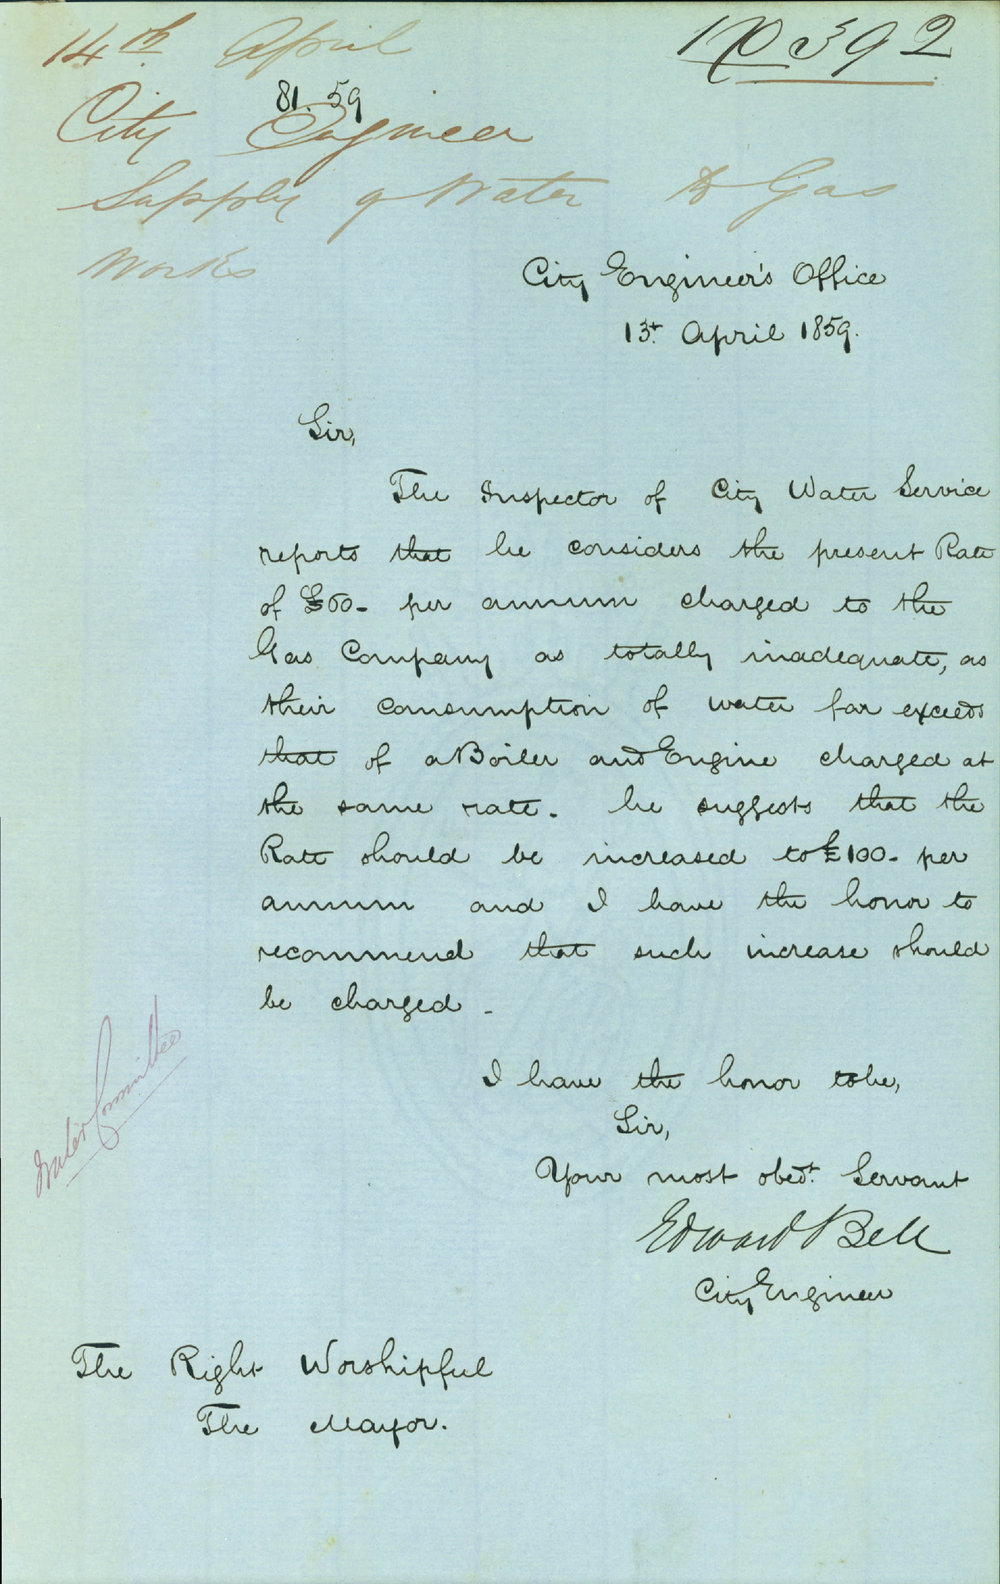 14th April
392
81.59
City Engineer
Supply of Water to Gas
Works
City Engineer's Office
13t. April 1859.
Sir,
The Inspector of City Water Service
reports that he considers the present Rate
of £60- per annum charged to the
Gas Company as totally inadequate, as
their consumption of water far exceeds
that of a Boiler and Engine charged at
the same rate. he suggests that the
Rate should be increased to £100- per
annum and I have the honor to
recommend that such increase should
be charged -
Water Committee
I have the honor to be,
Sir,
Your most obedt. Servant
Edward Bell
City Engineer
The Right Worshipful
The Mayor.